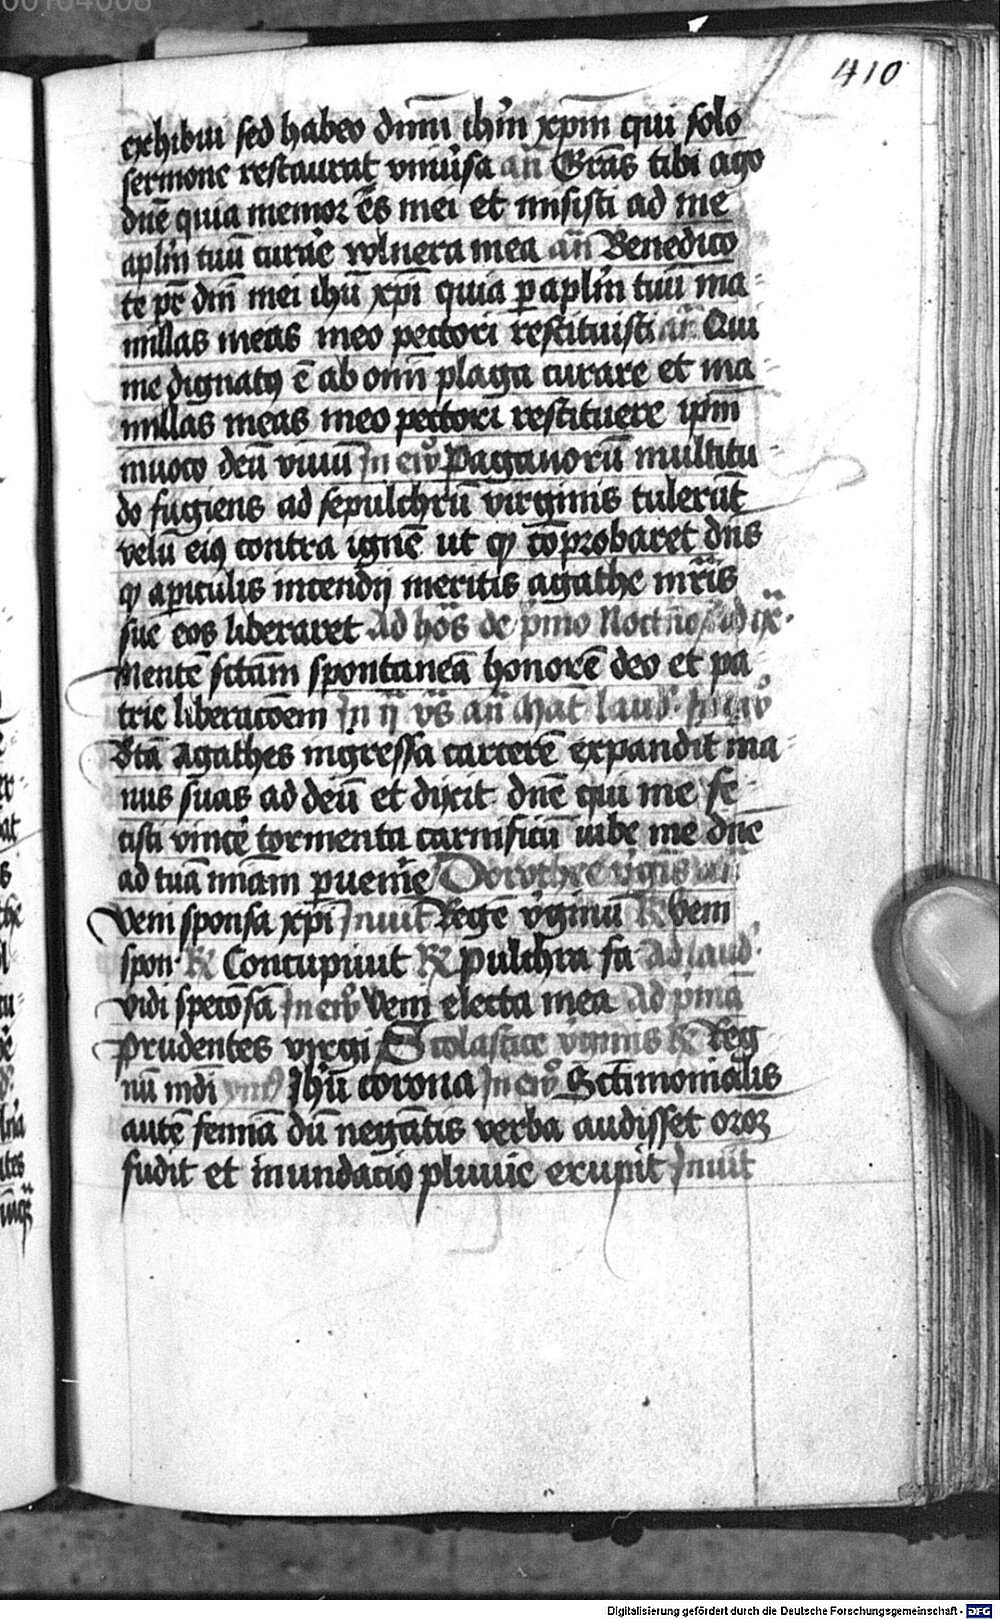 00104008
410
exhibui sed habeo dnm̄ ihm̄ xpm̄ qui solo
sermone restaurat vniūsa an̄ Grās tibi ago
dnē quia memor ēs mei et misisti ad me
aplm̄ tuū curāe wlnera mea an̄ Benedico
te pr̄ dnī mei ihū xpī quia p aplm̄ tuū ma-
millas meas meo pectori restituisti an̄ Qui
me dignatꝰ ē ab omī plaga curare et ma-
millas meas meo pectori restituere ipm̄
inuoco deū viuū In eūo Paganorū multitu-
do fugiens ad sepulchrū virginis tulerūt
velū eiꝰ contra ignē ut ꝙ cōprobaret dn̄s
ꝙ a piculis incendij meritis agathe mr̄is
sue eos liberaret Ad hōs de pm̄o Noctn̄o
Mentē sctām spontaneā honorē deo et pa-
trie liberacōem In ij vs̄ an̄ mat laud In eūo
Btā Agathes ingressa carcerē expandit ma-
nus suas ad deū et dixit dnē qui me fe-
cisti vincē tormenta carnificū iube me dnē
ad tuā mīam puenīe Dorothee v̄gīs
Veni sponsa xpī Inuit Regē v̄ginū R Veni
spon R Concupiuit R Pulchra fa Ad laud
vidi specōsā In eūo Veni electa mea Ad pmā
prudentes virgi Scolastice v̄ginis R Reg
nū mdī Ihū corona In eūo Sctimonialis
autē femīa dū negātis verba audisset oroꝝ
fudit et inundacio pluuie erupit Inuit
Digitalisierung gefördert durch die Deutsche Forschungsgemeinschaft - DFG